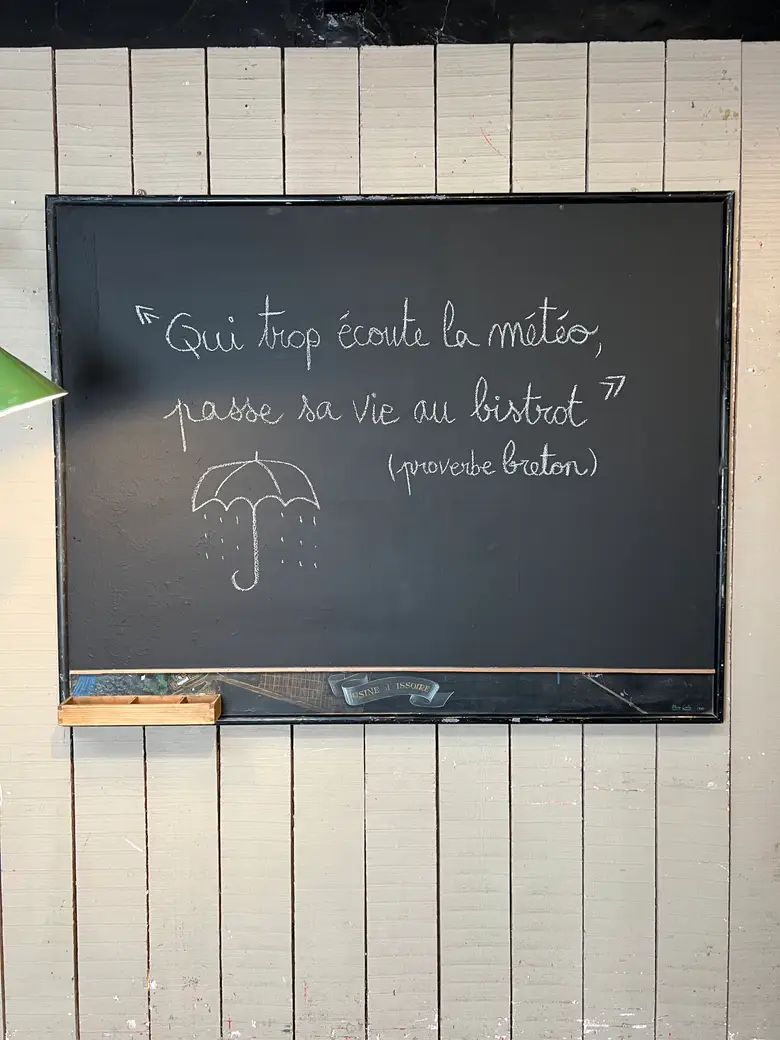 « Qui trop écoute la météo,
passe sa vie au bistrot »
(proverbe breton)
USINE d'ISSOIRE